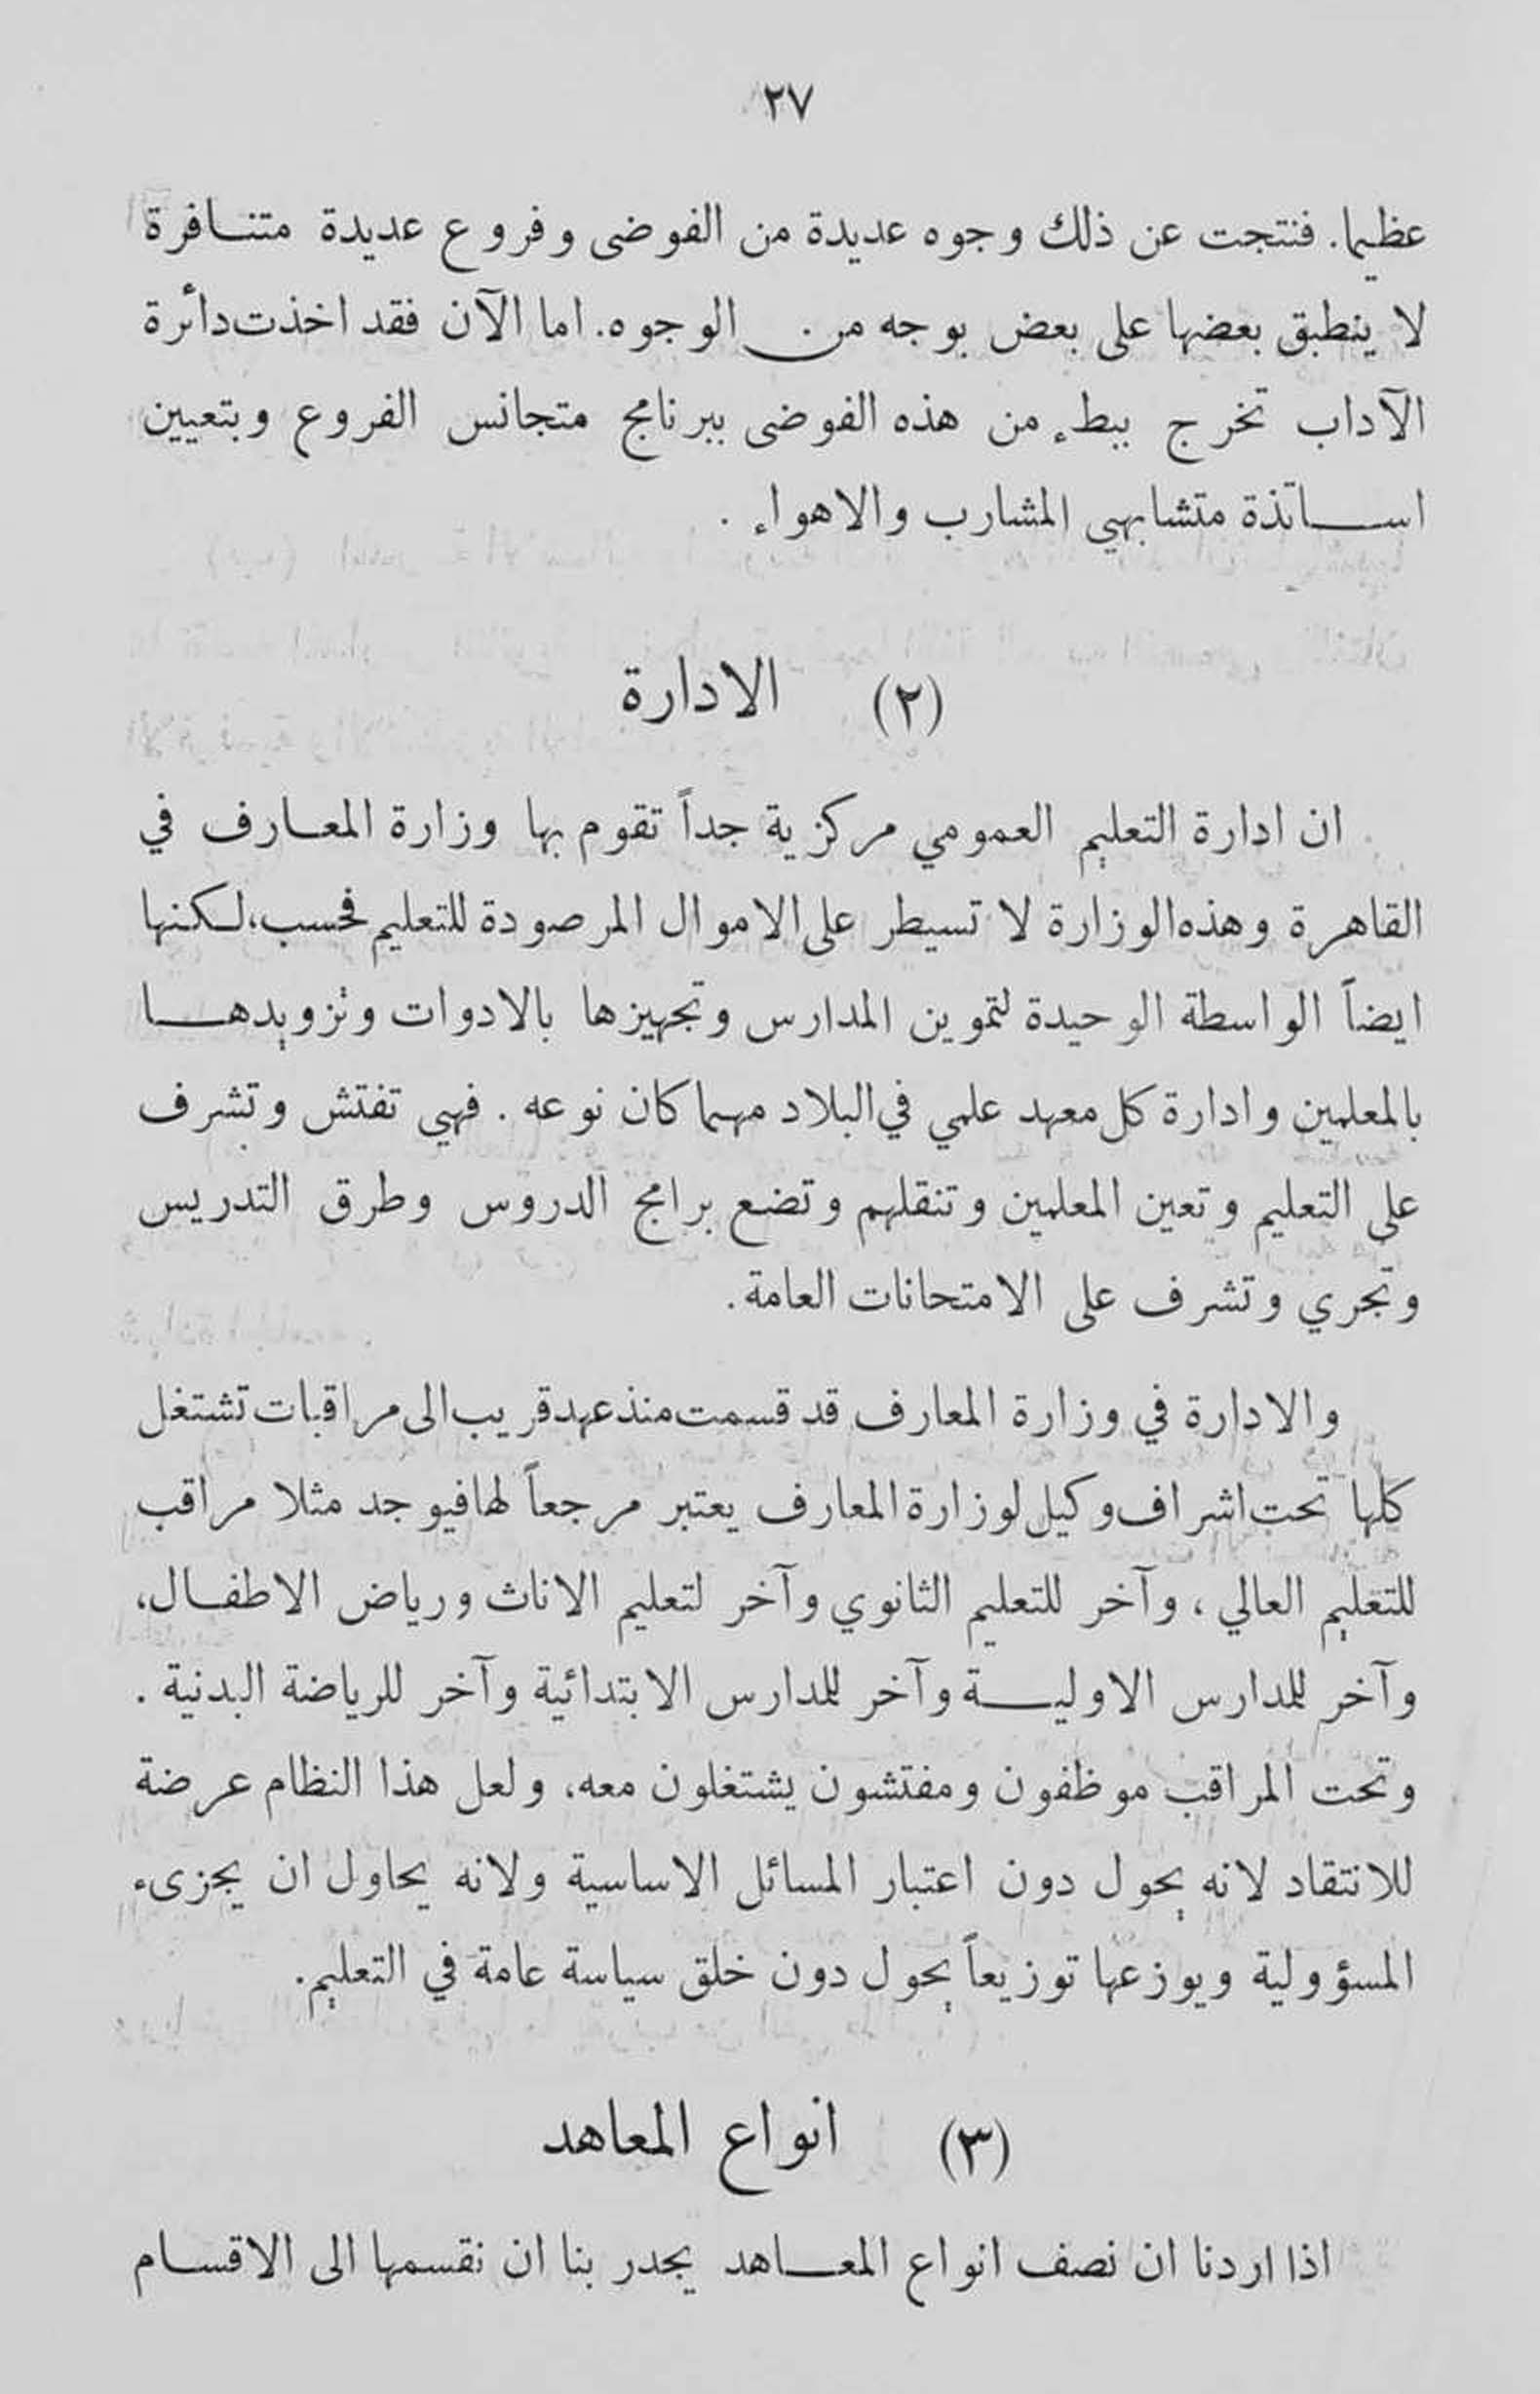 ٢٧
عظيما. فنتجت عن ذلك وجوه عديدة من الفوضى وفروع عديدة متنافرة
لا ينطبق بعضها على بعض بوجه من الوجوه. اما الآن فقد اخذت دائرة
الآداب تخرج ببطء من هذه الفوضى ببرنامج متجانس الفروع وبتعيين
اساتذة متشابهي المشارب والاهواء .
(٢) الادارة
ان ادارة التعليم العمومي مركزية جداً تقوم بها وزارة المعارف في
القاهرة وهذه الوزارة لا تسيطر على الاموال المرصودة للتعليم فحسب، لكنها
ايضاً الواسطة الوحيدة لتموين المدارس وتجهيزها بالادوات وتزويدها
بالمعلمين وادارة كل معهد علمي في البلاد مهما كان نوعه . فهي تفتش وتشرف
على التعليم وتعين المعلمين وتنقلهم وتضع برامج الدروس وطرق التدريس
وتجري وتشرف على الامتحانات العامة.
والادارة في وزارة المعارف قد قسمت منذ عهد قريب الى مراقبات تشتغل
كلها تحت اشراف وكيل لوزارة المعارف يعتبر مرجعاً لها فيوجد مثلا مراقب
للتعليم العالي ، وآخر للتعليم الثانوي وآخر لتعليم الاناث ورياض الاطفال،
وآخر للمدارس الاولية وآخر للمدارس الابتدائية وآخر للرياضة البدنية .
وتحت المراقب موظفون ومفتشون يشتغلون معه، ولعل هذا النظام عرضة
للانتقاد لانه يحول دون اعتبار المسائل الاساسية ولانه يحاول ان يجزىء
المسؤولية ويوزعها توزيعاً يحول دون خلق سياسة عامة في التعليم.
(٣) انواع المعاهد
اذا اردنا ان نصف انواع المعاهد يجدر بنا ان نقسمها الى الاقسام